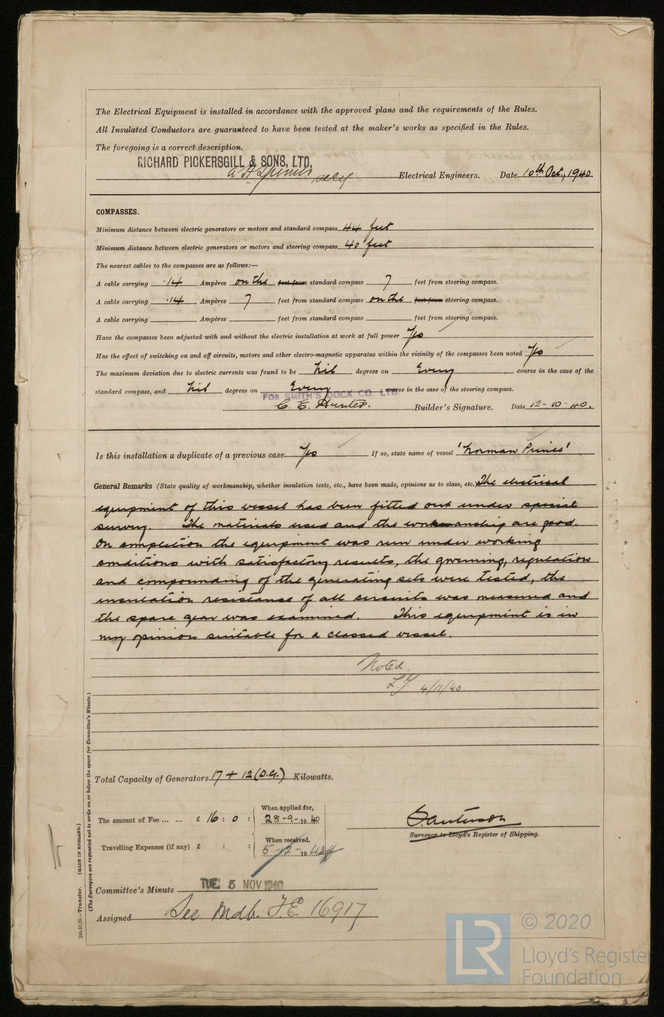 The Electrical Equipment is installed in accordance with the approved plans and the requirements of the Rules.
All Insulated Conductors are guaranteed to have been tested at the maker's works as specified in the Rules.
The foregoing is a correct description.
RICHARD PICKERSGILL & SONS, LTD.
Electrical Engineers. Date 10th Oct, 1940
COMPASSES.
Minimum distance between electric generators or motors and standard compass 44 feet
Minimum distance between electric generators or motors and steering compass 40 feet
The nearest cables to the compasses are as follows:—
A cable carrying .14 Ampères on the feet from standard compass 7 feet from steering compass.
A cable carrying .14 Ampères 7 feet from standard compass on the feet from steering compass.
A cable carrying Ampères feet from standard compass feet from steering compass.
Have the compasses been adjusted with and without the electric installation at work at full power Yes
Has the effect of switching on and off circuits, motors and other electro-magnetic apparatus within the vicinity of the compasses been noted Yes
The maximum deviation due to electric currents was found to be Nil degrees on Every course in the case of the
standard compass, and Nil degrees on Every course in the case of the steering compass.
FOR SMITH'S DOCK CO. LTD.
Builder's Signature. Date 12-10-40.
Is this installation a duplicate of a previous case Yes If so, state name of vessel 'Norman Prince'
General Remarks (State quality of workmanship, whether insulation tests, etc., have been made, opinions as to class, etc. The electrical
equipment of this vessel has been fitted out under special
survey. The materials used and the workmanship are good.
On completion the equipment was run under working
conditions with satisfactory results, the governing, regulation
and compounding of the generating sets were tested, the
insulation resistance of all circuits was measured and
the spare gear was examined. This equipment is in
my opinion suitable for a classed vessel.
Noted
4/11/40
Total Capacity of Generators 17 + 12 (D.G.) Kilowatts.
The amount of Fee ... ... £ 16 : 0 : When applied for, 28-9-1940
Travelling Expenses (if any) £ : : When received,
Surveyor to Lloyd's Register of Shipping.
Committee's Minute TUE 5 NOV 1940
Assigned See Mdb. F.E. 16917
Transfer. (MADE IN ENGLAND.)
(The Surveyors are requested not to write on or below the space for Committee's Minute.)
LR © 2020
Lloyd's Register
Foundation